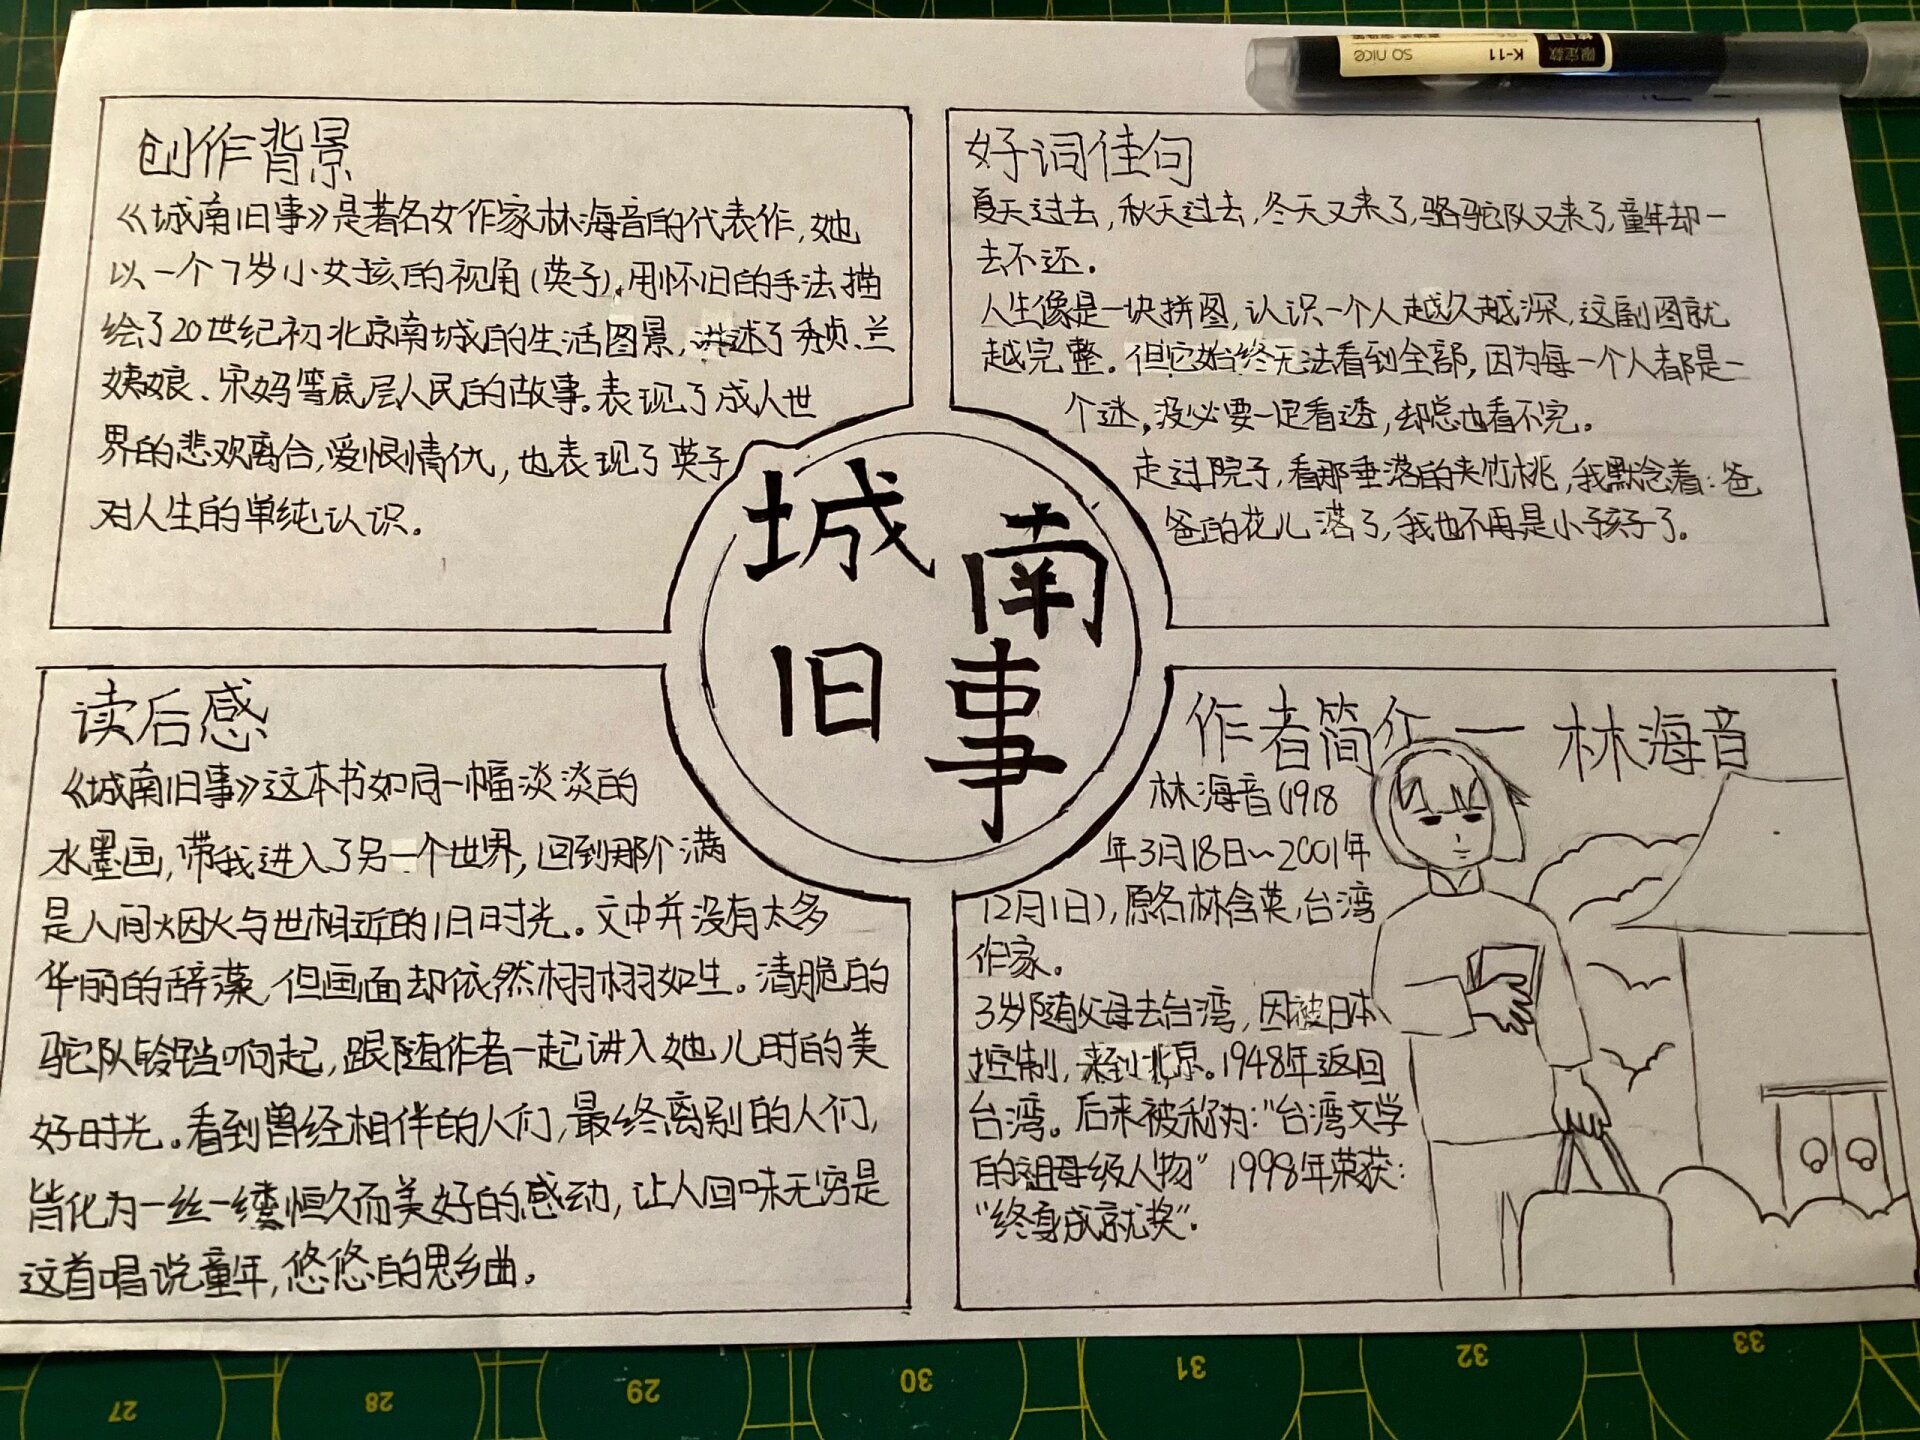 创作背景
《城南旧事》是著名女作家林海音的代表作,她
以一个7岁小女孩的视角(英子),用怀旧的手法描
绘了20世纪初北京南城的生活图景,讲述了秀贞、兰
姨娘、宋妈等底层人民的故事。表现了成人世
界的悲欢离合,爱恨情仇,也表现了英子
对人生的单纯认识。
好词佳句
夏天过去,秋天过去,冬天又来了,骆驼队又来了,童年却一
去不还。
人生像是一块拼图,认识一个人越久越深,这副图就
越完整。但它始终无法看到全部,因为每一个人都是一
个迷,没必要一定看透,却总也看不完。
走过院子,看那垂落的夹竹桃,我默念着:爸
爸的花儿落了,我也不再是小孩子了。
城南
旧事
读后感
《城南旧事》这本书如同一幅淡淡的
水墨画,带我进入了另一个世界,回到那个满
是人间烟火与世相近的旧时光。文中并没有太多
华丽的辞藻,但画面却依然栩栩如生。清脆的
驼队铃铛响起,跟随作者一起进入她儿时的美
好时光。看到曾经相伴的人们,最终离别的人们,
皆化为一丝一缕恒久而美好的感动,让人回味无穷是
这首唱说童年,悠悠的思乡曲。
作者简介一林海音
林海音(1918
年3月18日~2001年
12月1日),原名林含英,台湾
作家。
3岁随父母去台湾,因被日本
控制,来到北京。1948年返回
台湾。后来被称为:"台湾文学
的祖母级人物" 1998年荣获:
"终身成就奖".
限定款
K-11
so nice
27 28 29 30 31 32 33